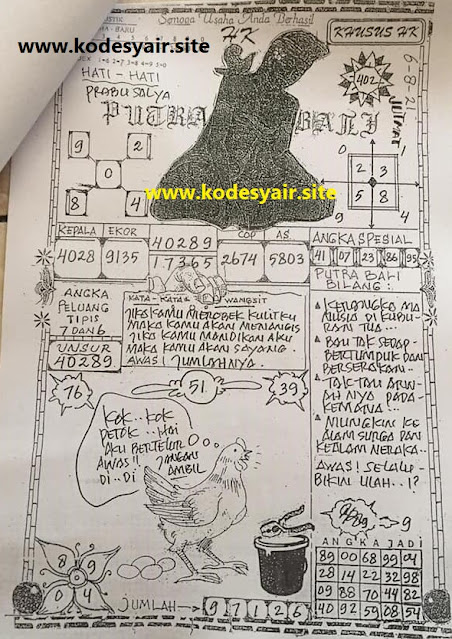 Semoga Usaha Anda Berhasil
www.kodesyair.site
HK
KHUSUS HK
6-8-21
HATI - HATI
PRABU SALYA
PUTRA BALI
402
9 2
0
8 4
0 1
2 3
5 8
9 4
www.kodesyair.site
KEPALA EKOR
4028 9135
40289
17365
COP AS
2674 5803
ANGKA SPESIAL
41 07 23 86 95
ANGKA
PELUANG
TIPIS
7 DAN 6
UNSUR
40289
KATA - KATA WANGSIT
JIKA KAMU MEROBEK KULITKU
MAKA KAMU AKAN MENANGIS
JIKA KAMU MANDIKAN AKU
MAKA KAMU AKAN SAYANG.
AWAS! JUMLAHNYA.
PUTRA BALI
BILANG:.
KERANGKA MA
NUSIA DI KUBU-
RAN TUA...
BAU TAK SEDAP
BERTUMPUK DAN
BERSERAKAN..
TAK TAU ARW-
AHNYA PADA
KEMANA...
MUNGKIN KE
ALAM SURGA DAN
KEALAM NERAKA..
AWAS! SELALU
BIKIN ULAH..!?
76
51
39
KOK..KOK
PETOK..HAI
AKU BERTELUR
AWAS!! JANGAN
DI-DI AMBIL
9
ANGKA JADI
89 00 68 99 04
28 14 22 32 98
09 88 70 44 82
40 92 59 08 54
8 9
0 4
JUMLAH 9 7 1 2 6